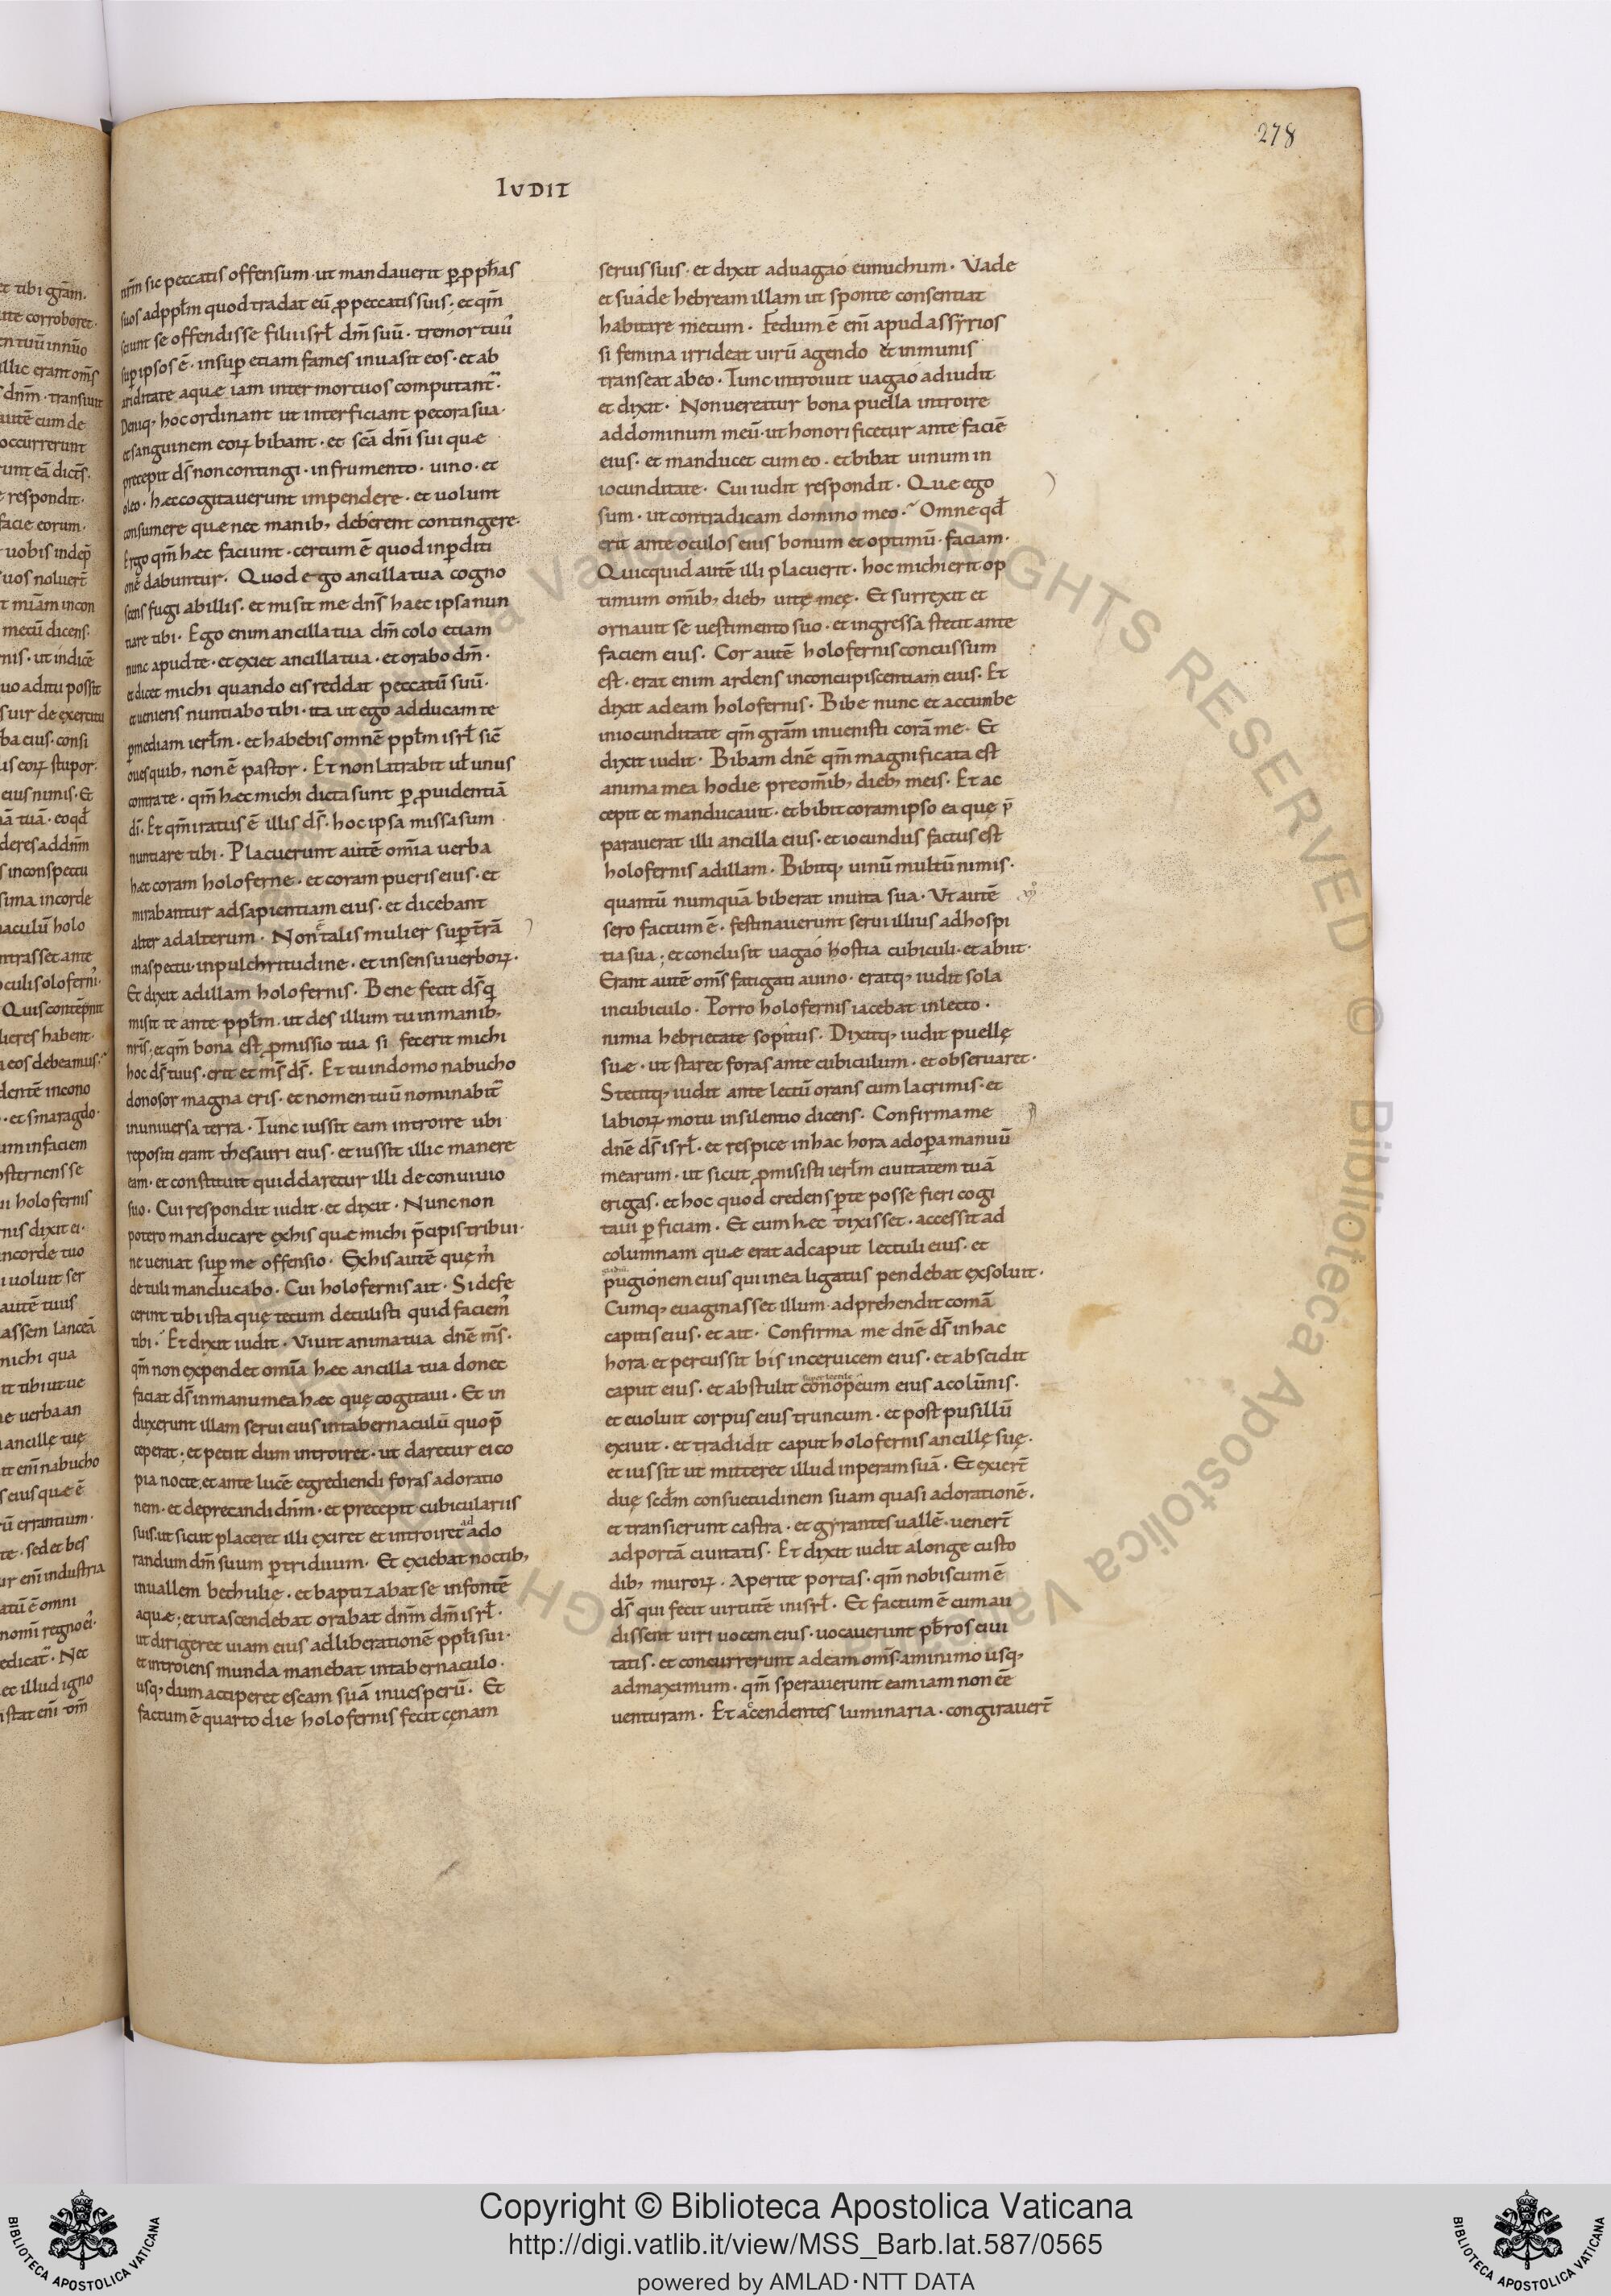 278
IUDIT
nr̄m sic peccatis offensum · ut mandauerit ꝑ ꝓph̄as
suos ad ppl̄m quod tradat eū ꝓ peccatis suis; et qm̄
sciunt se offendisse filii isrl̄ dm̄ suū · tremor tuus
suꝑ ipsos ē · insuꝑ etiam fames inuasit eos · et ab
ariditate aquæ iam inter mortuos computant̄ ·
Deniq, hoc ordinant ut interficiant pecora sua ·
et sanguinem eoꝝ bibant · et sc̄a dn̄i sui quæ
precepit ds̄ non contingi · in frumento · uino · et
oleo · hæc cogitauerunt impendere · et uolunt
consumere quæ nec manib, deberent contingere ·
Ergo qm̄ hæc faciunt · certum ē quod in ꝑditi
onē dabuntur · Quod ego ancilla tua cogno
scens fugi ab illis · et misit me dn̄s haec ipsa nun
tiare tibi · Ego enim ancilla tua dm̄ colo etiam
nunc apud te · et exiet ancilla tua · et orabo dm̄ ·
et dicet michi quando eis reddat peccatū suū ·
et ueniens nuntiabo tibi · ita ut ego adducam te
ꝑ mediam ierl̄m · et habebis omnē ppl̄m isrl̄ sic̄
oues quib, non ē pastor · Et non latrabit ul̄ unus
contra te · qm̄ hæc michi dicta sunt ꝑ ꝓuidentiā
dī · Et qm̄ iratus ē illis ds̄ · hoc ipsa missa sum
nuntiare tibi · Placuerunt autē om̄ia uerba
hæc coram holoferne · et coram pueris eius · et
mirabantur ad sapientiam eius · et dicebant
alter ad alterum · Non ē talis mulier suꝑ trā
in aspectu · in pulchritudine · et in sensu uerboꝝ ·
Et dixit ad illam holofernis · Bene fecit ds̄ q
misit te ante ppl̄m · ut des illum tu in manib,
nr̄is; et qm̄ bona est ꝓmissio tua si fecerit michi
hoc ds̄ tuus · erit et ms̄ ds̄ · Et tu in domo nabucho
donosor magna eris · et nomen tuū nominabit̄
in uniuersa terra · Tunc iussit eam introire ubi
repositi erant thesauri eius · et iussit illic manere
eam · et constituit quid daretur illi de conuiuio
suo · Cui respondit iudit · et dixit · Nunc non
potero manducare ex his quæ michi p̄cipis tribui ·
ne ueniat suꝑ me offensio · Ex his autē quę m
detuli manducabo · Cui holofernis ait · Si defe
cerint tibi ista quę tecum detulisti quid faciem
tibi · Et dixit iudit · Viuit anima tua dn̄e ms̄ ·
qm̄ non expendet om̄ia hæc ancilla tua donec
faciat ds̄ in manu mea hæc quę cogitaui · Et in
duxerunt illam serui eius in tabernaculū quo p̄
ceperat · et petiit dum introiret · ut daretur ei co
pia nocte et ante lucē egrediendi foras ad oratio
nem · et deprecandi dn̄m · et precepit cubiculariis
suis ut sicut placeret illi exiret et introiret ad ado
randum dm̄ suum ꝑ triduum · Et exiebat noctib,
in uallem bethulie · et baptizabat se in fontē
aquæ; et ut ascendebat orabat dn̄m dm̄ isrl̄ ·
ut dirigeret uiam eius ad liberationē ppl̄i sui ·
et introiens munda manebat in tabernaculo ·
usq, dum acciperet escam suā in uesperū · Et
factum ē quarto die holofernis fecit cęnam
seruis suis · et dixit ad uagao eunuchum · Vade
et suade hebream illam ut sponte consentiat
habitare mecum · Fedum ē eni apud assyrios
si femina irrideat uirū agendo et inmunis
transeat ab eo · Tunc introiuit uagao ad iudit
et dixit · Non uereatur bona puella introire
ad dominum meū · ut honorificetur ante faciē
eius · et manducet cum eo · et bibat uinum in
iocunditate · Cui iudit respondit · Quæ ego
sum · ut contradicam domino meo · Omne qd̄
erit ante oculos eius bonum et optimū · faciam ·
Quicquid autē illi placuerit · hoc michi erit op
timum om̄ib, dieb, uitę meę · Et surrexit et
ornauit se uestimento suo · et ingressa stetit ante
faciem eius · Cor autē holofernis concussum
est · erat enim ardens in concupiscentiam eius · Et
dixit ad eam holofernis · Bibe nunc et accumbe
in iocunditate qm̄ grām inuenisti corā me · Et
dixit iudit · Bibam dn̄e qm̄ magnificata est
anima mea hodie pre om̄ib, dieb, meis · Et ac
cepit et manducauit · et bibit coram ipso ea quę p̄
parauerat illi ancilla eius · et iocundus factus est
holofernis ad illam · Bibitq, uinū multū nimis ·
quantū numquā biberat in uita sua · Vt autē
sero factum ē · festinauerunt serui illius ad hospi
tia sua; et conclusit uagao hostia cubiculi · et abiit ·
Erant autē om̄s fatigati a uino · eratq, iudit sola
in cubiculo · Porro holofernis iacebat in lecto ·
nimia hebrietate sopitus · Dixitq, iudit puellę
suæ · ut staret foras ante cubiculum · et obseruaret ·
Stetitq, iudit ante lectū orans cum lacrimis · et
labioꝝ motu in silentio dicens · Confirma me
dn̄e ds̄ isrl̄ · et respice in hac hora ad opera manuū
mearum · ut sicut ꝓmisisti ierl̄m ciuitatem tuā
erigas · et hoc quod credens ꝑ te posse fieri cogi
taui ꝑficiam · Et cum hæc dixisset · accessit ad
columnam quæ erat ad caput lectuli eius · et
pugionem eius qui in ea ligatus pendebat exsoluit ·
Cumq, euaginasset illum · adprehendit comā
capitis eius · et ait · Confirma me dn̄e ds̄ in hac
hora et percussit bis in ceruicem eius · et abscidit
caput eius · et abstulit conopeum eius a colūnis ·
et euoluit corpus eius truncum · et post pusillū
exiuit · et tradidit caput holofernis ancillę suę ·
et iussit ut mitteret illud in peram suā · Et exiert̄
duę scd̄m consuetudinem suam quasi ad orationē ·
et transierunt castra · et gyrantes uallē · uenert̄
ad portā ciuitatis · Et dixit iudit a longe custo
dib, muroꝝ · Aperite portas · qm̄ nobiscum ē
ds̄ qui fecit uirtutē in isrl̄ · Et factum ē cum au
dissent uiri uocem eius · uocauerunt pb̄ros ciui
tatis · et concurrerunt ad eam om̄s · a minimo usq,
ad maximum · qm̄ sperauerunt eam iam non ēē
uenturam · Et accendentes luminaria · congirauert̄
Copyright © Biblioteca Apostolica Vaticana
http://digi.vatlib.it/view/MSS_Barb.lat.587/0565
powered by AMLAD·NTT DATA
BIBLIOTECA APOSTOLICA VATICANA
BIBLIOTECA APOSTOLICA VATICANA